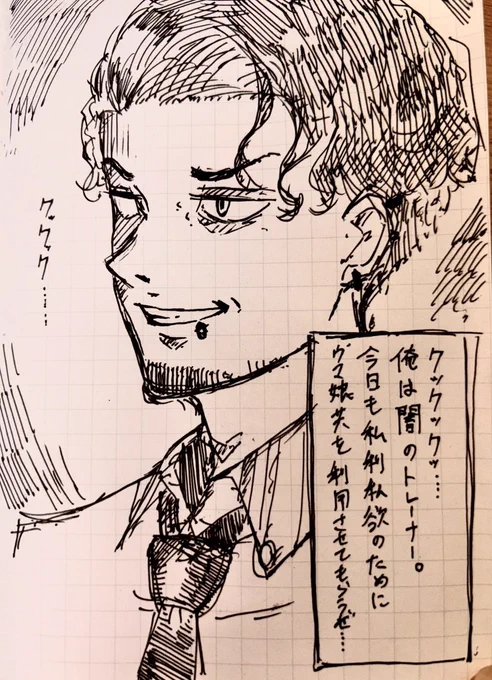 クックックッ……
俺は闇のトレーナー。
今日も私利私欲のために
ウマ娘共を利用させてもらうぜ…
クックック……